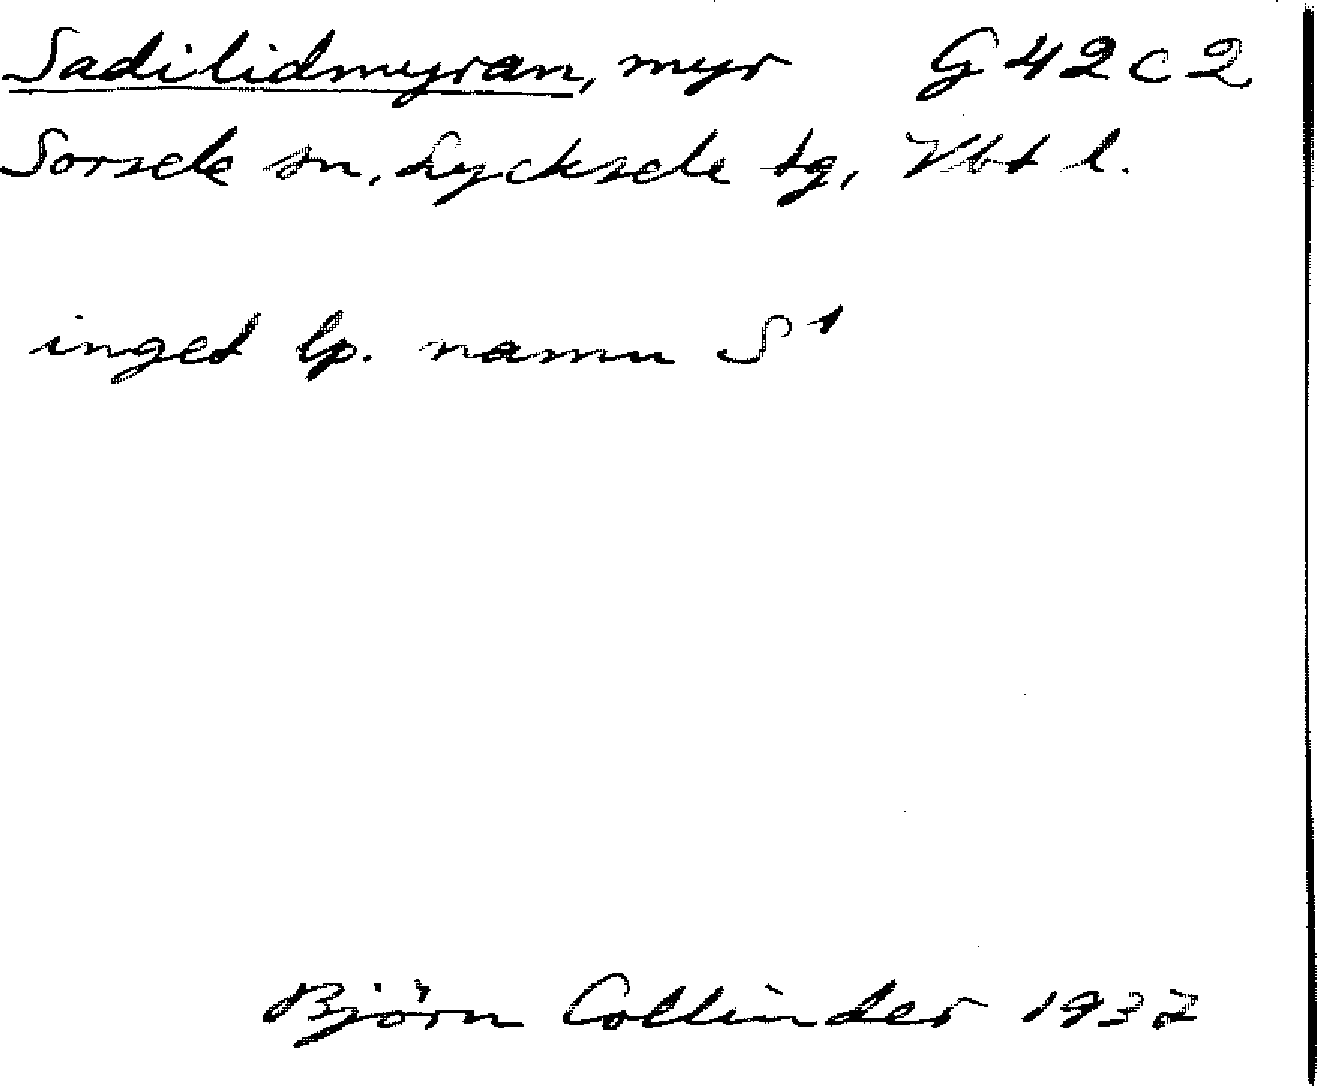 Sadilidmyran, myr G42c2
Sorsele sn, Lycksele tg, Vbt l.
inget lp. namn S¹
Björn Collinder 1937